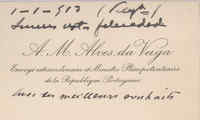 1-1-913
A. M. Alves da Veiga
Envoyé extraordinaire et Ministre Plénipotentiaire
de la République Portugaise
avec ses meilleurs souhaits